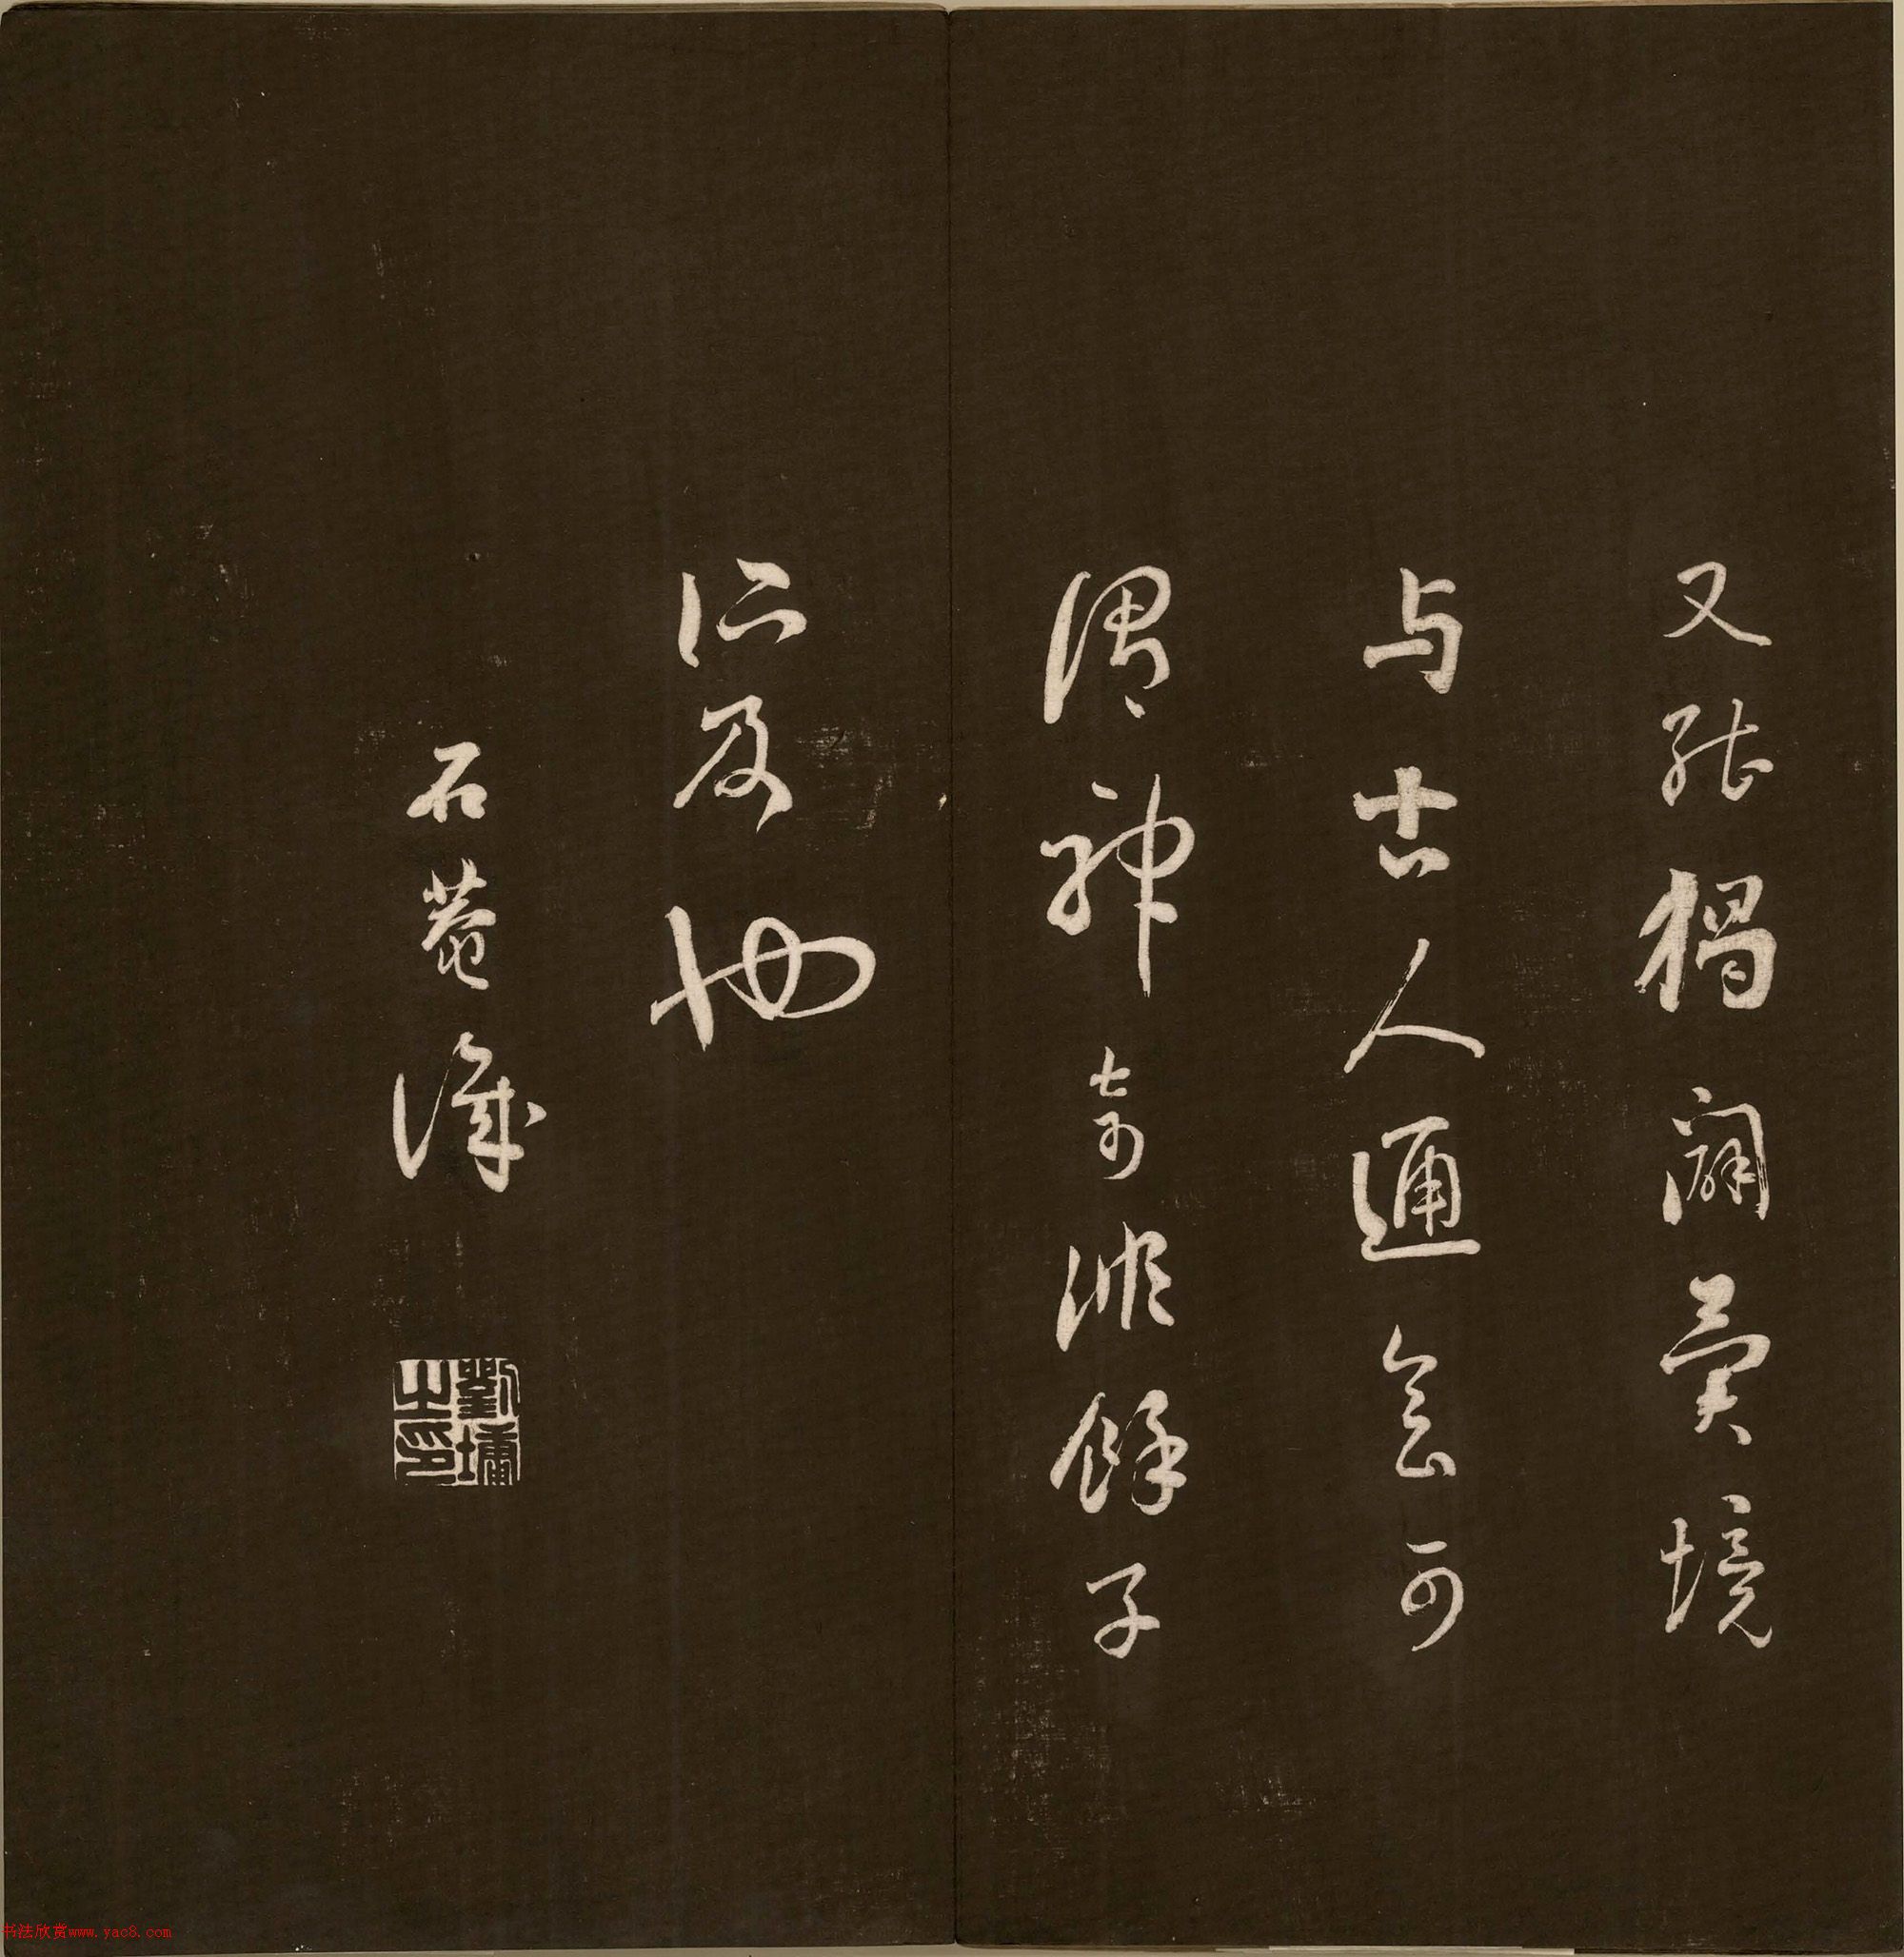 又能獨闢異境
与古人通會可
謂神奇非餘子
所及也
石菴識
劉墉之印
书法欣赏www.yac8.com